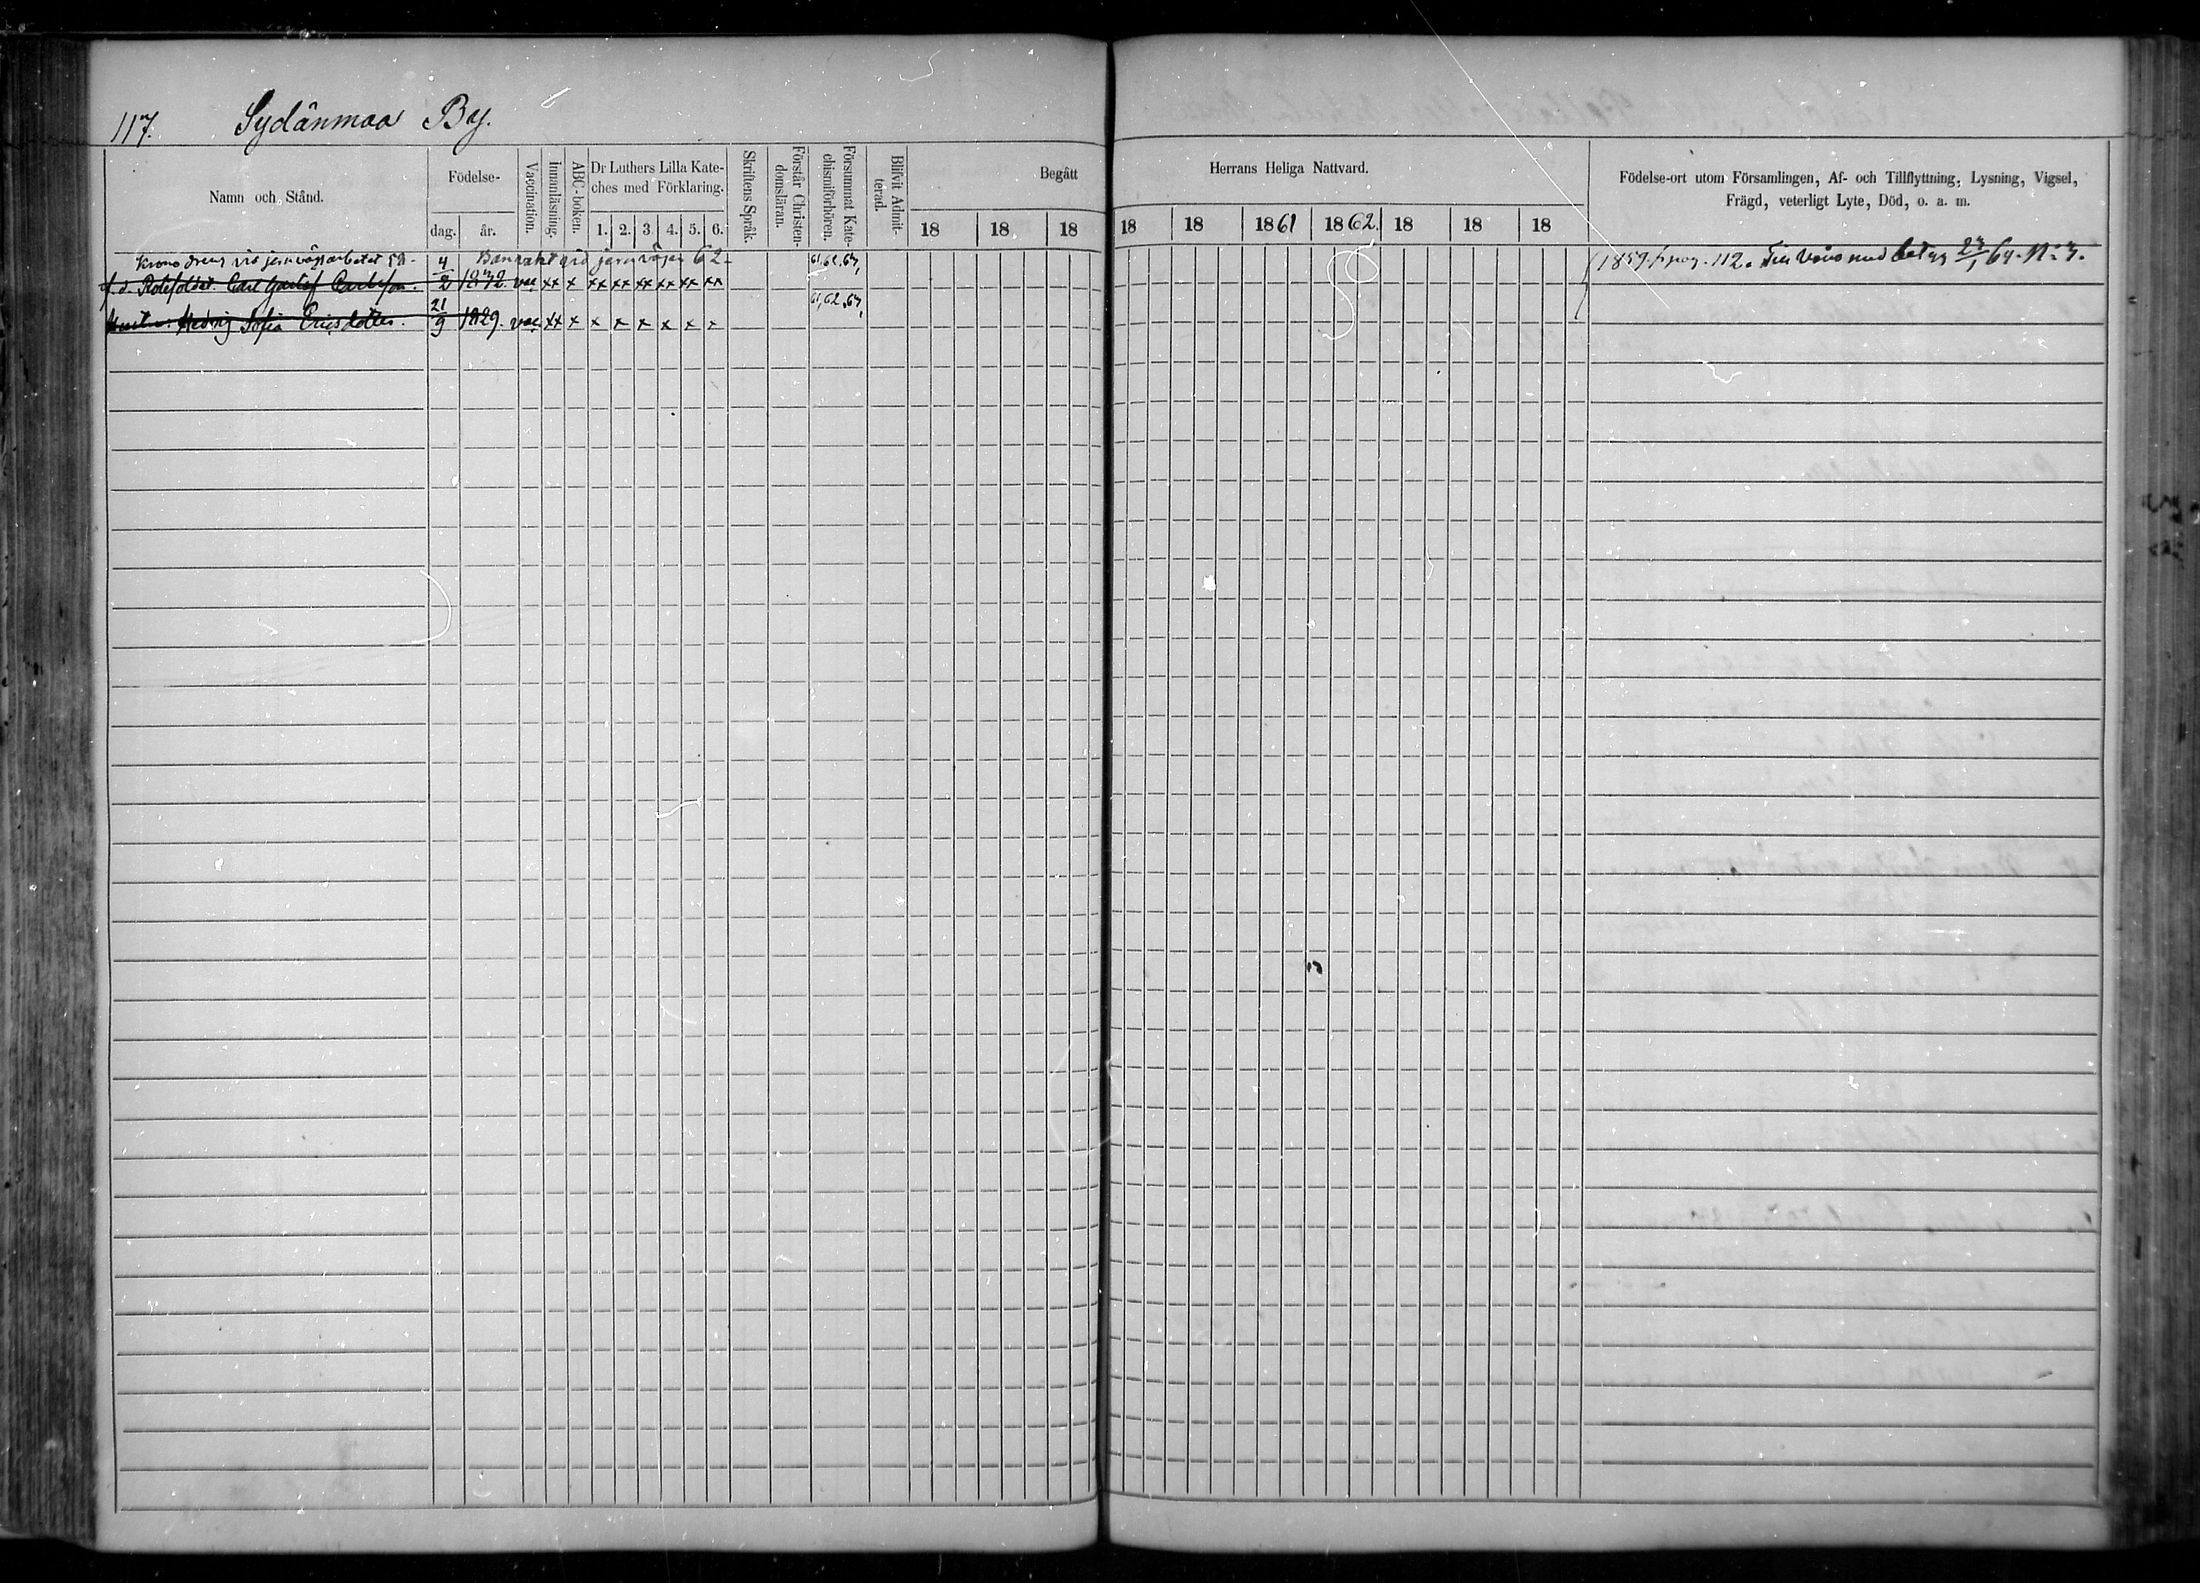 117. Sydänmaa By.
Namn och Stånd.
Födelse-
dag. år.
Vaccination.
Innanläsning.
ABC-boken.
Dr Luthers Lilla Kate-
ches med Förklaring.
1. 2. 3. 4. 5. 6.
Skriftens Språk.
Förstår Christen-
domsläran.
Försummat Kate-
chismiförhören.
Blifvit Admit-
terad.
Begått
18 18 18
Herrans Heliga Nattvard.
18 18 1861 1862. 18 18 18
Födelse-ort utom Församlingen, Af- och Tillflyttning, Lysning, Vigsel,
Frägd, veterligt Lyte, Död, o. a. m.
Krono dreng vid jernvägsarbetet Banvakt vid jernvägen 62.
f. d. Rotesoldat. Carl Gustaf Carlsson. 4/2 1832. vac xx x xx xx xx xx xx xx 61, 62, 63, 1857 fr. pag. 112. Till med betyg 64. N:o 3.
Hustru Hedvig Sofia Ericsdotter. 21/9 1829. vac xx x x x x x x x 61, 62, 63,